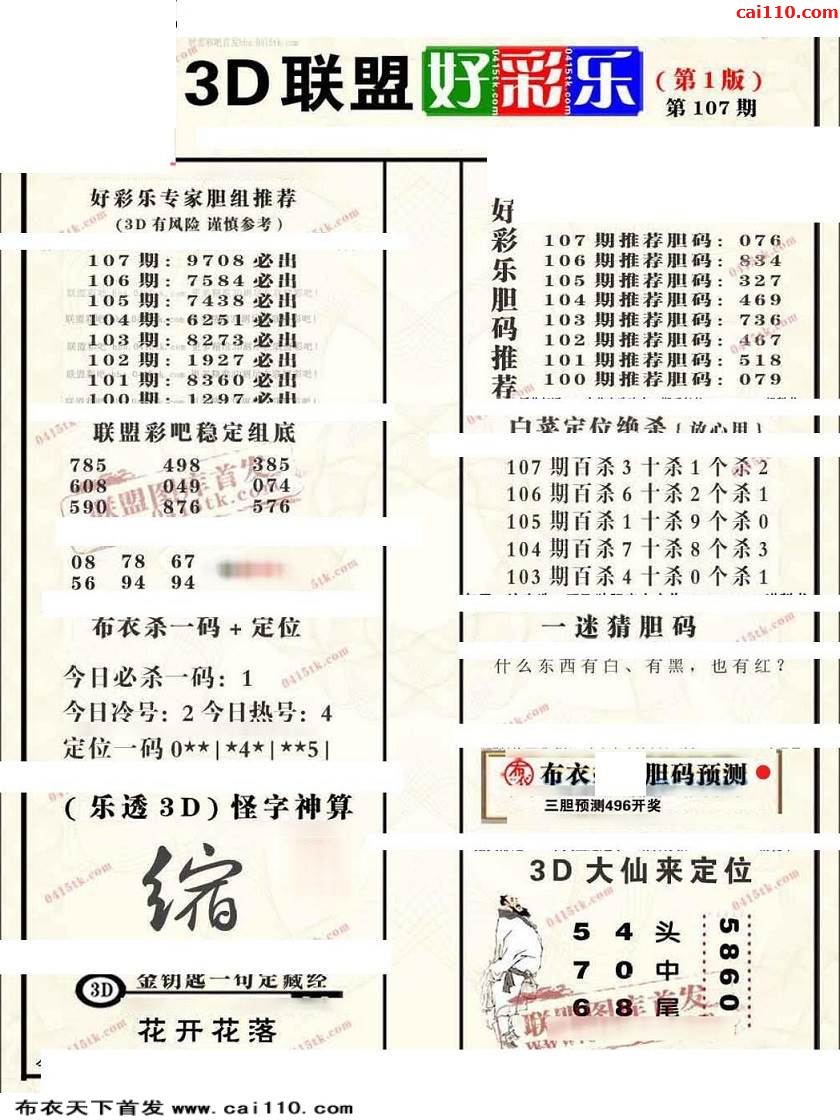 cai110.com
3D联盟 好彩乐
(第1版)
第107期
好彩乐专家胆组推荐
(3D有风险 谨慎参考)
107期: 9708必出
106期: 7584必出
105期: 7438必出
104期: 6251必出
103期: 8273必出
102期: 1927必出
101期: 8360必出
100期: 1297必出
联盟彩吧稳定组底
785 498 385
608 049 074
590 876 576
08 78 67
56 94 94
布衣杀一码+定位
今日必杀一码: 1
今日冷号: 2 今日热号: 4
定位一码0**|*4*|**5|
(乐透3D)怪字神算
缩
3D 金钥匙一句定藏经
花开花落
好彩乐胆码推荐
107期推荐胆码: 076
106期推荐胆码: 834
105期推荐胆码: 327
104期推荐胆码: 469
103期推荐胆码: 736
102期推荐胆码: 467
101期推荐胆码: 518
100期推荐胆码: 079
白菜定位绝杀{放心用}
107期百杀3十杀1个杀2
106期百杀6十杀2个杀1
105期百杀1十杀9个杀0
104期百杀7十杀8个杀3
103期百杀4十杀0个杀1
一迷猜胆码
什么东西有白、有黑，也有红?
布衣 胆码预测
三胆预测496开奖
3D大仙来定位
5 4 头
7 0 中
6 8 尾
5860
联盟图库首发
0415tk.com
布衣天下首发 www.cai110.com